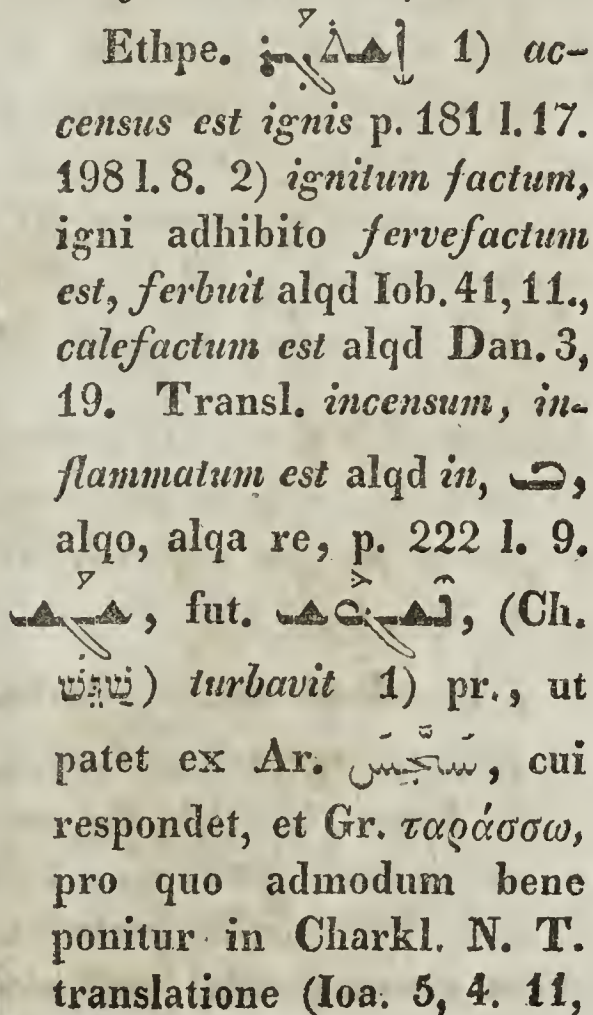 Ethpe. ܐܶܫܬܓܰܪ 1) ac-
census est ignis p. 181 l. 17.
198 l. 8. 2) ignitum factum,
igni adhibito fervefactum
est, ferbuit alqd Iob. 41, 11.,
calefactum est alqd Dan. 3,
19. Transl. incensum, in-
flammatum est alqd in, ܒ,
alqo, alqa re, p. 222 l. 9.
ܫܓܰܫ, fut. ܢܶܫܓܽܘܫ, (Ch.
שַׁגֵּשׁ) turbavit 1) pr., ut
patet ex Ar. سَجَّسَ, cui
respondet, et Gr. ταράσσω,
pro quo admodum bene
ponitur in Charkl. N. T.
translatione (Ioa. 5, 4. 11,